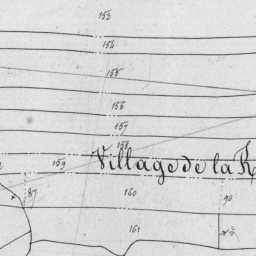 153
154
155
156
157
158
159 Village de la R
87
160
90
161